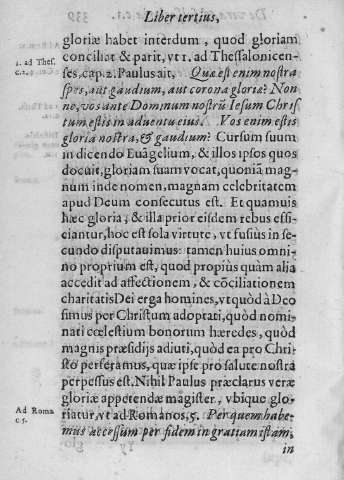 Liber tertius,
gloriæ habet interdum, quod gloriam
conciliat & parit, vt 1. ad Thessalonicen-
1. ad Thes.
c.2.
ses, cap. 2. Paulus ait, Quæ est enim nostra
spes, aut gaudium, aut corona gloriæ? Non
ne, vos ante Dominum nostrũ Iesum Chris-
tum estis in aduentu eius. Vos enim estis
gloria nostra, & gaudium? Cursum suum
in dicendo Euãgelium, & illos ipsos quos
docuit, gloriam suam vocat, quoniã mag-
num inde nomen, magnam celebritatem
apud Deum consecutus est. Et quamuis
hæc gloria; & illa prior eisdem rebus effi-
ciantur, hoc est sola virtute, vt fusiùs in se-
cundo disputauimus: tamen huius omni-
no proprium est, quod propiùs quàm alia
accedit ad affectionem, & cõciliationem
charitatis Dei erga homines, vt quòd à Deo
simus per Christum adoptati, quòd nomi-
nati cœlestium bonorum hæredes, quòd
magnis præsidijs adiuti, quòd ea pro Chri-
sto perferamus, quæ ipse pro salute nostra
perpessus est. Nihil Paulus præclarus veræ
gloriæ appetendæ magister, vbique glo-
Ad Roma
c.5.
riatur, vt ad Romanos, 5. Per quem habe-
mus accessum per fidem in gratiam istam,
in